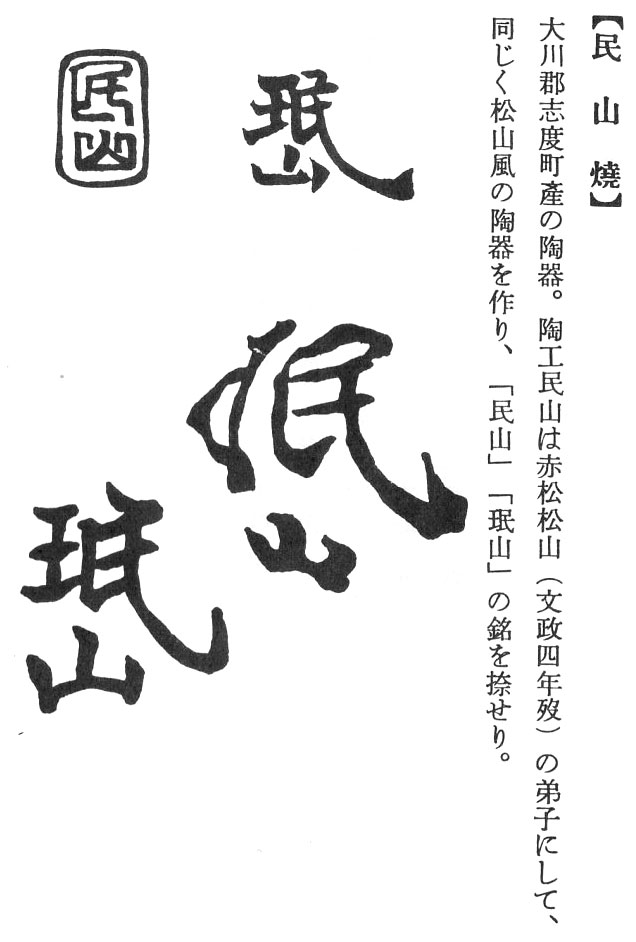 【民山燒】
大川郡志度町產の陶器。陶工民山は赤松松山（文政四年歿）の弟子にして、
同じく松山風の陶器を作り、「民山」「珉山」の銘を捺せり。
珉山
民山
珉山
珉山